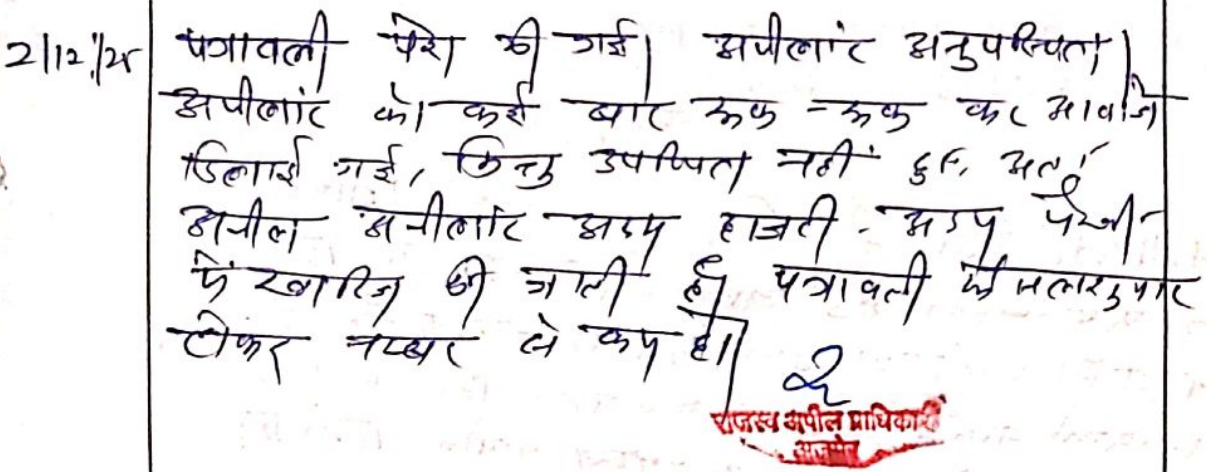 2/12/25 पत्रावली पेश की गई। अपीलांट अनुपस्थित।
अपीलांट को कई बार रूक-रूक कर आवाजे
दिलाई गई, किन्तु उपस्थित नहीं हुए, अतः
अपील अपीलांट अदम हाजरी-अदम पैरवी
में खारिज की जाती है। पत्रावली फैसलाशुमार
होकर नम्बर से कम हो।
राजस्व अपील प्राधिकारी
अजमेर